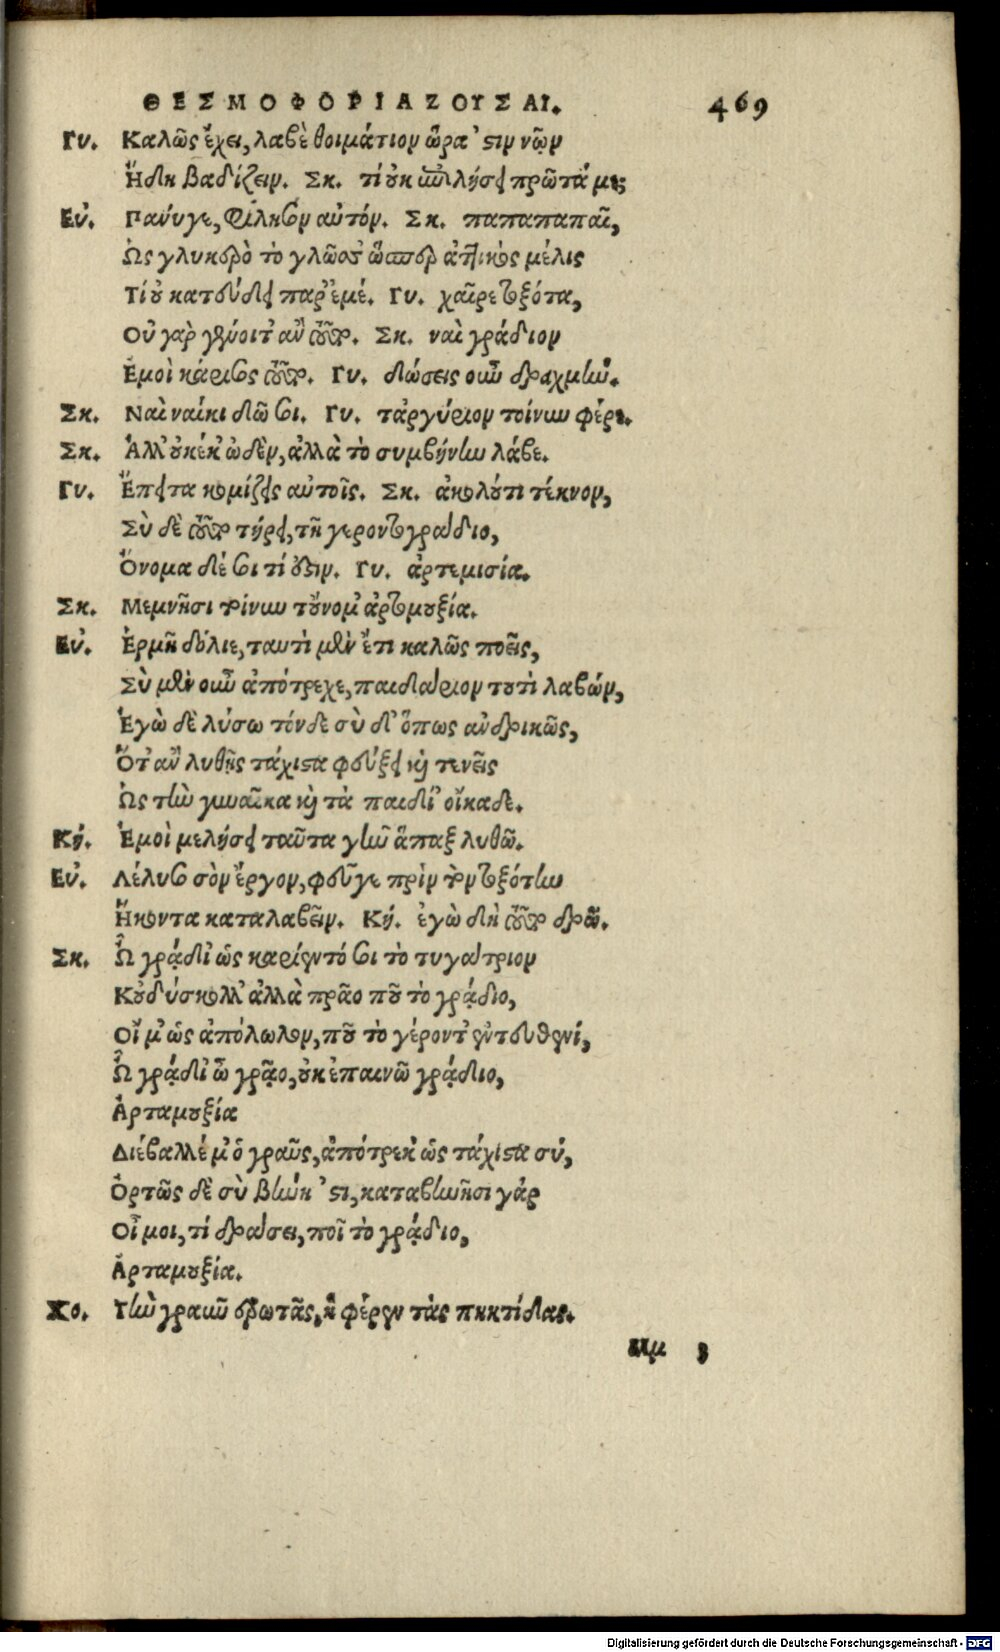 ΘΕΣΜΟΦΟΡΙΑΖΟΥΣΑΙ. 469
Γυ. Καλῶς ἔχει, λαβὲ θοιμάτιον ὥρα 'στιν νῷν
Ἤδη βαδίζειν. Σκ. τί οὐκ ἐπιλήσει πρῶτά με;
Εὐ. Πάνυγε, φίλησον αὐτόν. Σκ. παπαπαπαῖ,
Ὡς γλυκερὸ τὸ γλῶσσ' ὥσπερ ἀττικὸς μέλις
Τί οὐ κατεύδει παρ' ἐμέ. Γυ. χαῖρε τοξότα,
Οὐ γὰρ γένοιτ' ἂν τοῦτο. Σκ. ναὶ γράδιον
Ἐμοὶ κάρισος τοῦτο. Γυ. δώσεις οὖν δραχμήν.
Σκ. Ναὶ ναίκι δῶ σι. Γυ. τἀργύριον τοίνυν φέρε.
Σκ. Ἀλλ' οὐκ ἐκ' ὠδὲν, ἀλλὰ τὸ συμβήνην λάβε.
Γυ. Ἔπειτα κομίζεις αὐτοῖς. Σκ. ἀκολούτι τέκνον,
Σὺ δὲ τοῦτο τήρει, τῇ γεροντογράδιο,
Ὄνομα δέ σι τί οὐστιν. Γυ. ἀρτεμισία.
Σκ. Μεμνῆσι τοίνυν τοὔνομ' ἀρτομουξία.
Εὐ. Ἑρμῆ δόλιε, ταυτὶ μὲν ἔτι καλῶς ποεῖς,
Σὺ μὲν οὖν ἀπότρεχε, παιδάριον τουτὶ λαβών,
Ἐγὼ δὲ λύσω τόνδε σὺ δ' ὅπως ἀνδρικῶς,
Ὅτ' ἂν λυθῇς τάχιστα φεύξει καὶ τενεῖς
Ὡς τὴν γυναῖκα καὶ τὰ παιδί' οἴκαδε.
Κή. Ἐμοὶ μελήσει ταῦτα γ' ἢν ἅπαξ λυθῶ.
Εὐ. Λέλυσο σὸν ἔργον, φεῦγε πρὶν τὸν τοξότην
Ἥκοντα καταλαβεῖν. Κή. ἐγὼ δὴ τοῦτο δρῶ.
Σκ. Ὦ γρᾴδι' ὡς καρίεντό σι τὸ τυγάτριον
Κοὐδύσκολλ' ἀλλὰ πρᾶο ποῦ τὸ γρᾴδιο,
Οἴμ' ὡς ἀπόλωλον, ποῦ τὸ γέροντ' ἐντευθενί,
Ὦ γρᾴδι' ὦ γρᾷο, οὐκ ἐπαινῶ γρᾴδιο,
Ἀρταμουξία
Διέβαλλέ μ' ὁ γραῦς, ἀπότρεκ' ὡς τάχιστα σύ,
Ὀρτῶς δὲ σὺ βήνη 'στι, καταβηνῆσι γὰρ
Οἴ μοι, τί δράσει, ποῖ τὸ γρᾴδιο,
Ἀρταμουξία.
Χο. Τὴν γραῦν ἐρωτᾷς, ἣ φέρεν τὰς πηκτίδας.
μμ 3
Digitalisierung gefördert durch die Deutsche Forschungsgemeinschaft - DFG